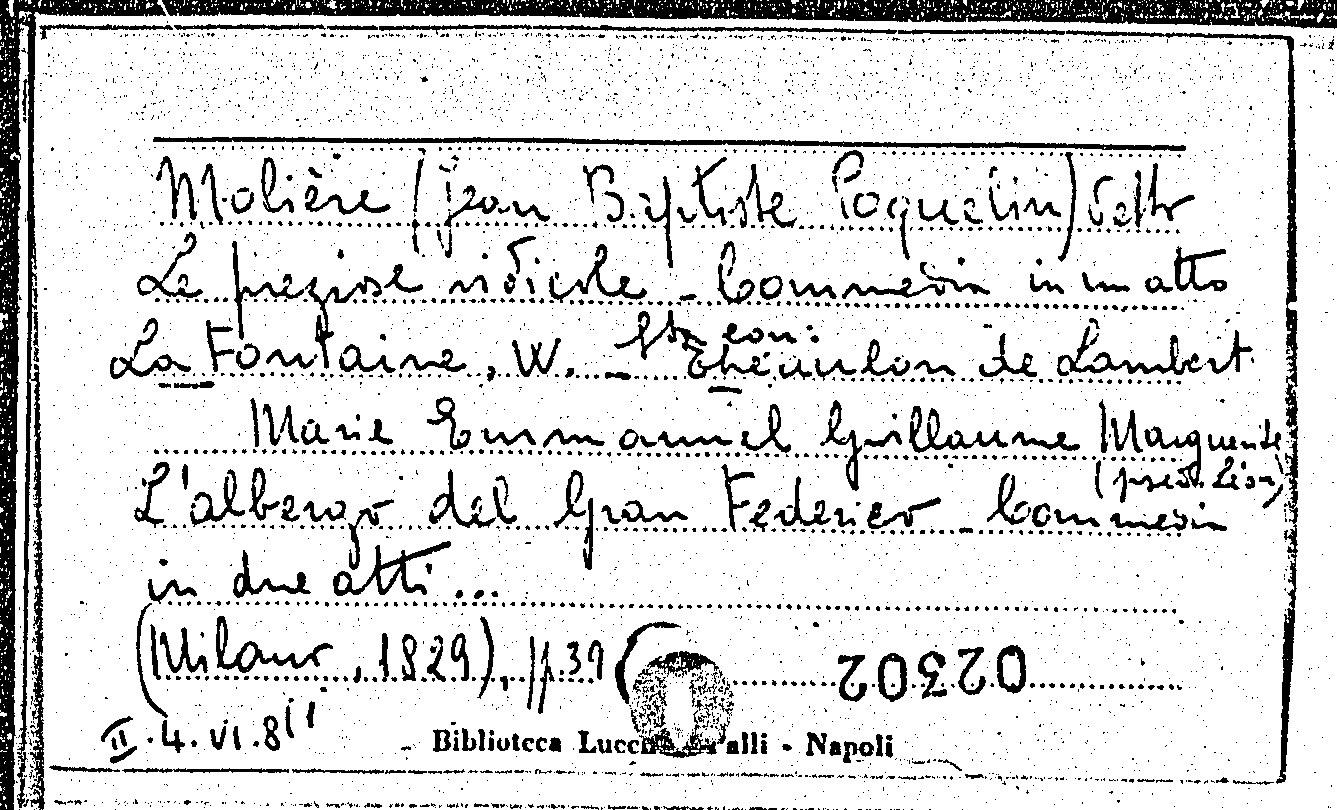 Molière (Jean Baptiste Poquelin) detto
Le preziose ridicole - Commedia in un atto
La Fontaine, W. - con:
Théaulon de Lambert
Marie Emmanuel Guillaume Marguerite
(pseud. Léon)
L'albergo del Gran Federico - Commedia
in due atti...
(Milano, 1829), pp. 39 (
02302
II.4.VI.8
- Biblioteca Lucch alli - Napoli